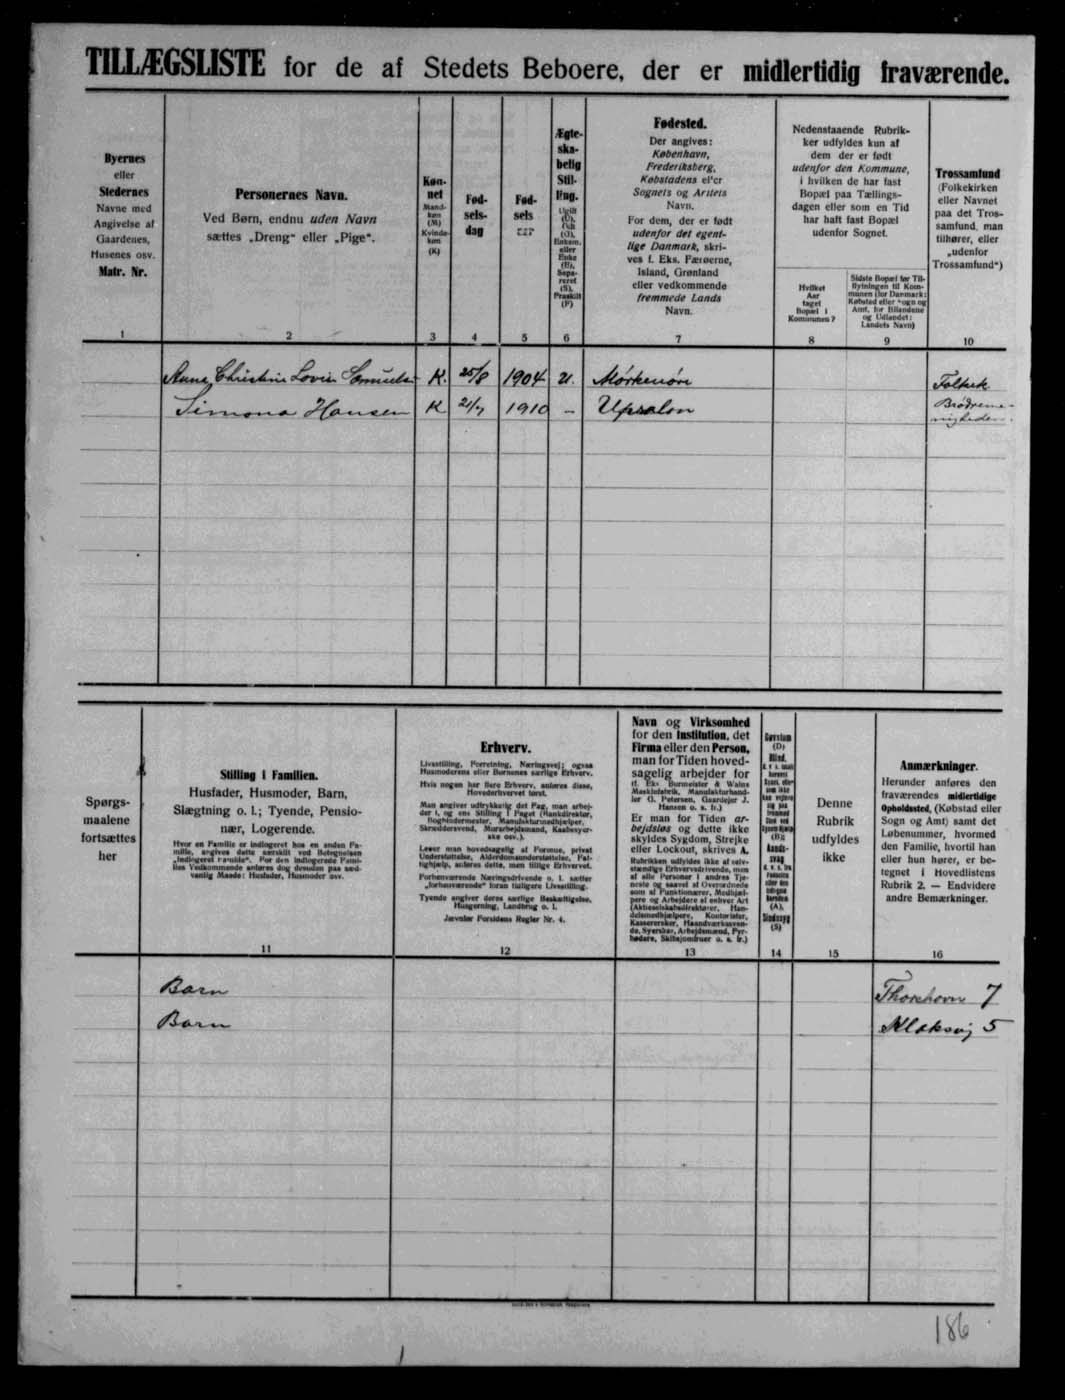 TILLÆGSLISTE for de af Stedets Beboere, der er midlertidig fraværende.
Byernes
eller
Stedernes
Navne med
Angivelse af
Gaardenes,
Husenes osv.
Matr. Nr.
1
Personernes Navn.
Ved Børn, endnu uden Navn
sættes „Dreng" eller „Pige".
2
Køn-
net
Mand-
køn
(M)
Kvinde-
køn
(K)
3
Fød-
sels-
dag
4
Fød-
sels
5
Ægte-
ska-
belig
Stil-
ling.
Ugift
(U),
Gift
(G),
Enkem.
eller
Enke
(E),
Sepa-
reret
(S),
Fraskilt
(F)
6
Fødested.
Der angives:
København,
Frederiksberg,
Købstadens eller
Sognets og Amtets
Navn.
For dem, der er født
udenfor det egent-
lige Danmark, skri-
ves f. Eks. Færøerne,
Island, Grønland
eller vedkommende
fremmede Lands
Navn.
7
Nedenstaaende Rubrik-
ker udfyldes kun af
dem der er født
udenfor den Kommune,
i hvilken de har fast
Bopæl paa Tællings-
dagen eller som en Tid
har haft fast Bopæl
udenfor Sognet.
Hvilket
Aar
taget
Bopæl i
Kommunen?
8
Sidste Bopæl før Til-
flytningen til Kom-
munen (for Danmark:
Købstad eller Sogn og
Amt, for Bilandene
og Udlandet:
Landets Navn)
9
Trossamfund
(Folkekirken
eller Navnet
paa det Tros-
samfund, man
tilhører, eller
„udenfor
Trossamfund")
10
Anna Christine Lovisa K. 25/8 1904 U. Mørkenøre Folkek
Simona Hansen K 21/7 1910 – Upsalon Brødreme-
nigheden.
Spørgs-
maalene
fortsættes
her
Stilling i Familien.
Husfader, Husmoder, Barn,
Slægtning o. l.; Tyende, Pensio-
nær, Logerende.
Hvor en Familie er indlogeret hos en anden Fa-
milie, angives dette særskilt ved Betegnelsen
„Indlogeret Familie". For den indlogerede Fami-
lies Vedkommende anføres dog desuden paa sæd-
vanlig Maade: Husfader, Husmoder osv.
11
Erhverv.
Livsstilling, Forretning, Næringsvej; ogsaa
Husmoderens eller Børnenes særlige Erhverv.
Hvis nogen har flere Erhverv, anføres disse,
Hovederhvervet først.
Man angiver udtrykkelig det Fag, man arbej-
der i, og ens Stilling i Faget (Bankdirektør,
Bogbindermester, Manufakturmedhjælper,
Skræddersvend, Murarbejdsmand, Kaabesyer-
ske osv.).
Lever man hovedsagelig af Formue, privat
Understøttelse, Alderdomsunderstøttelse, Fat-
tighjælp, anføres dette, men tillige Erhvervet.
Forhenværende Næringsdrivende o. l. sætter
„forhenværende" foran tidligere Livsstilling.
Tyende angiver deres særlige Beskæftigelse,
Husgerning, Landbrug o. l.
Jævnfør Forsidens Regler Nr. 4.
12
Navn og Virksomhed
for den Institution, det
Firma eller den Person,
man for Tiden hoved-
sagelig arbejder for
(f. Eks. Burmeister & Wains
Maskinfabrik, Manufakturhand-
ler O. Petersen, Gaardejer J.
Hansen o. s. fr.)
Er man for Tiden ar-
bejdsløs og dette ikke
skyldes Sygdom, Strejke
eller Lockout, skrives A.
Rubrikken udfyldes ikke af selv-
stændige Erhvervsdrivende, men
af alle Personer i andres Tje-
neste og saavel af Overordnede
som af Funktionærer, Medhjæl-
pere og Arbejdere af enhver Art
(Aktieselskabsdirektører, Han-
delsmedhjælpere, Kontorister,
Kassererske, Haandværkssven-
de, Syersker, Arbejdsmænd, Fyr-
bødere, Skibsjomfruer o. s. fr.)
13
Døvstum
(D)
Blind,
(B)
Aands-
svag
(A),
Sindssyg
(S)
14
Denne
Rubrik
udfyldes
ikke
15
Anmærkninger.
Herunder anføres den
fraværendes midlertidige
Opholdssted, (Købstad eller
Sogn og Amt) samt det
Løbenummer, hvormed
den Familie, hvortil han
eller hun hører, er be-
tegnet i Hovedlistens
Rubrik 2. — Endvidere
andre Bemærkninger.
16
Barn Thorshavn 7
Barn Klaksvig 5
186